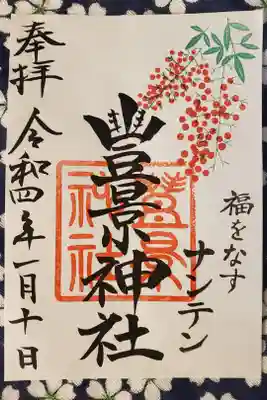 福をなす
ナンテン
豊景神社
奉拝
令和四年一月十日